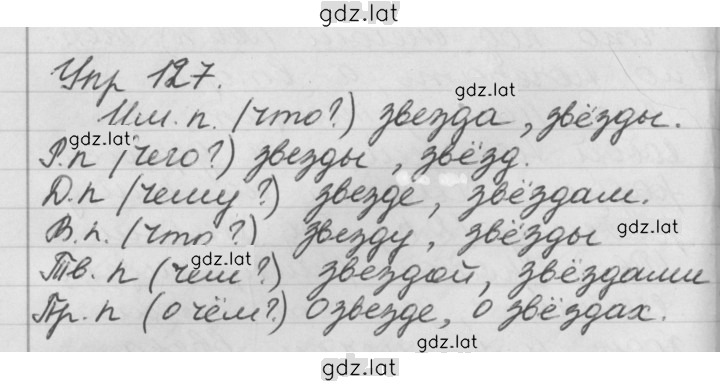 gdz.lat
Упр 127.
gdz.lat
Им. п. (что?) звезда, звёзды.
gdz.lat
Р.п (чего?) звезды, звёзд.
Д.п (чему?) звезде, звёздам.
В.п. (что?) звезду, звёзды
gdz.lat
Тв. п (чем?) звездой, звёздами
Пр. п (о чём?) О звезде, о звёздах.
gdz.lat
gdz.lat